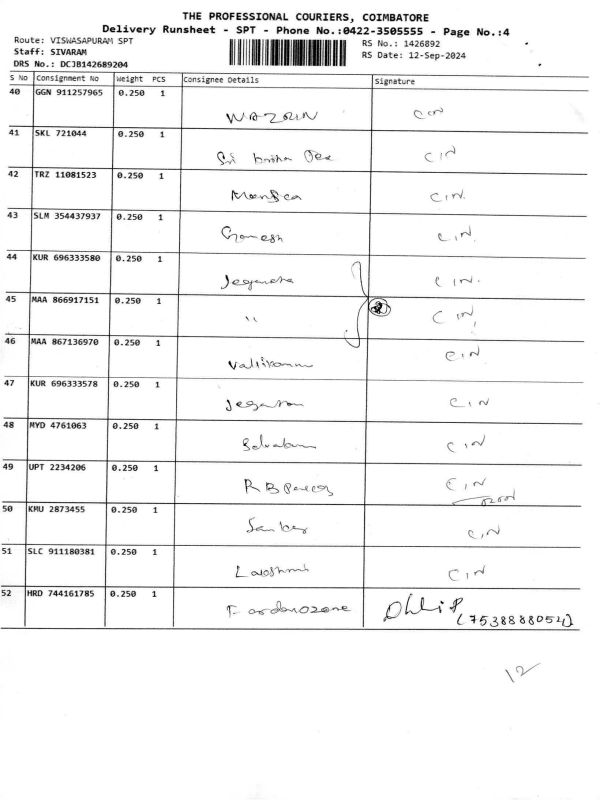 THE PROFESSIONAL COURIERS, COIMBATORE
Delivery Runsheet - SPT - Phone No.:0422-3505555 - Page No.:4
Route: VISWASAPURAM SPT RS No.: 1426892
Staff: SIVARAM RS Date: 12-Sep-2024
DRS No.: DCJB142689204
S No Consignment No Weight PCS Consignee Details Signature
40 GGN 911257965 0.250 1 CIN
41 SKL 721044 0.250 1 Sri CIN
42 TRZ 11081523 0.250 1 CIN.
43 SLM 354437937 0.250 1 Ganesh CIN.
44 KUR 696333580 0.250 1 CIN.
45 MAA 866917151 0.250 1 " CIN
46 MAA 867136970 0.250 1 CIN
47 KUR 696333578 0.250 1 CIN
48 MYD 4761063 0.250 1 CIN
49 UPT 2234206 0.250 1 RB CIN
50 KMU 2873455 0.250 1 CIN
51 SLC 911180381 0.250 1 CIN
52 HRD 744161785 0.250 1
(7538888054)
12